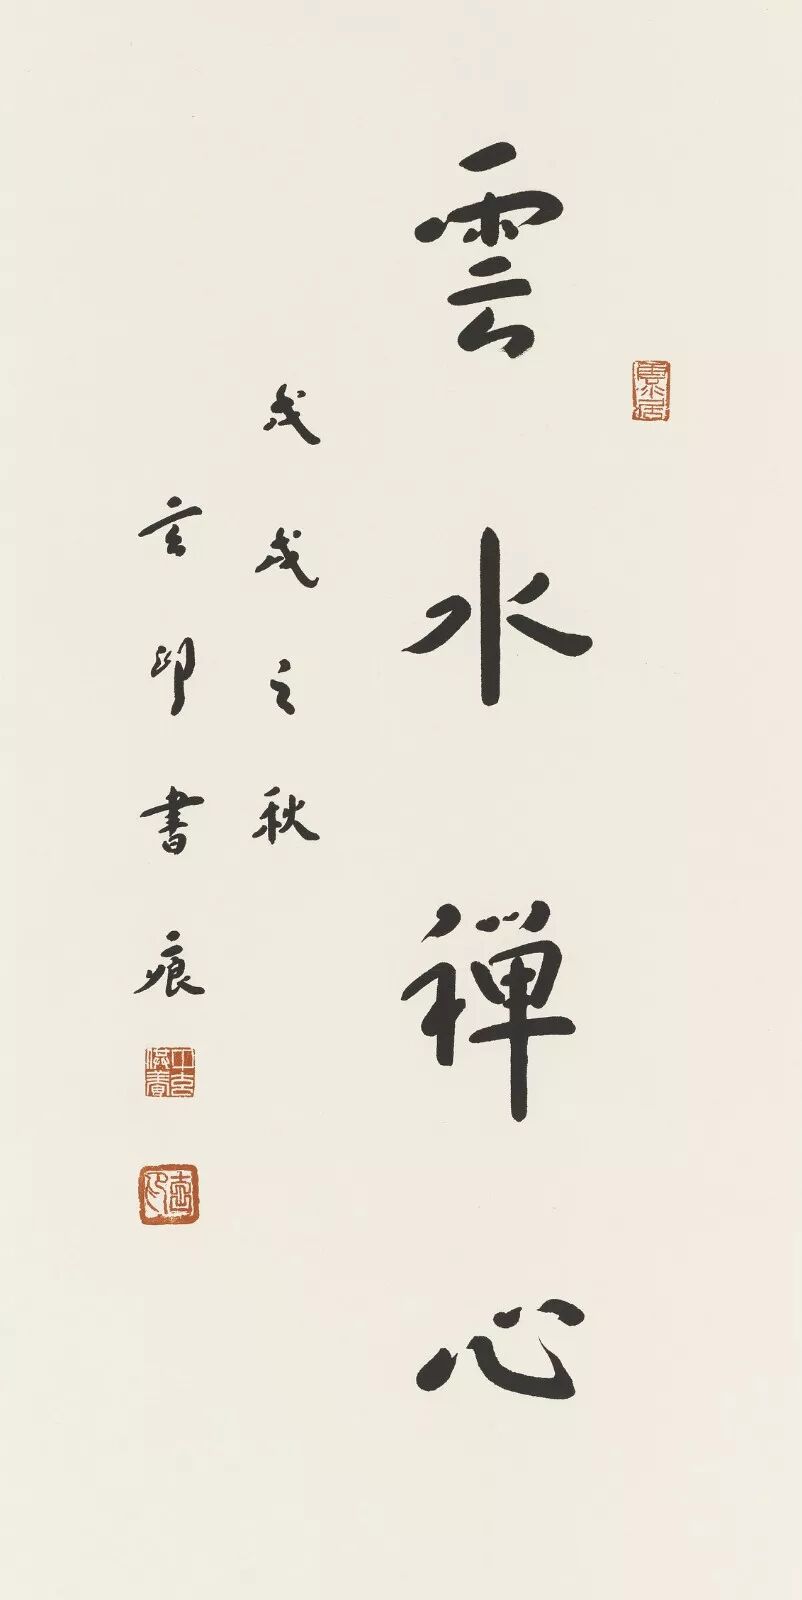 雲水禪心
戊戌之秋
玄印書痕